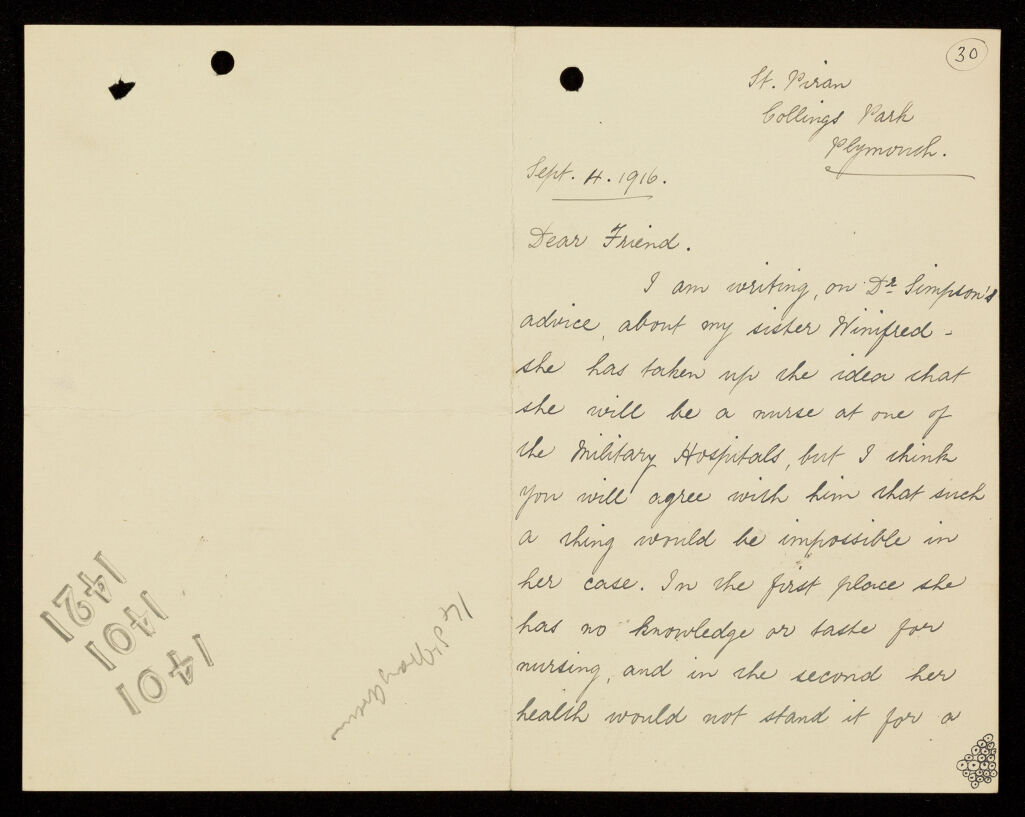 30
St. Piran
Collings Park
Plymouth.
Sept. 4. 1916.
Dear Friend.
I am writing, on Dr Simpson's
advice, about my sister Winifred -
she has taken up the idea that
she will be a nurse at one of
the Military Hospitals, but I think
you will agree with him that such
a thing would be impossible in
her case. In the first place she
has no knowledge or taste for
nursing, and in the second her
health would not stand it for a
1421
1401
1401